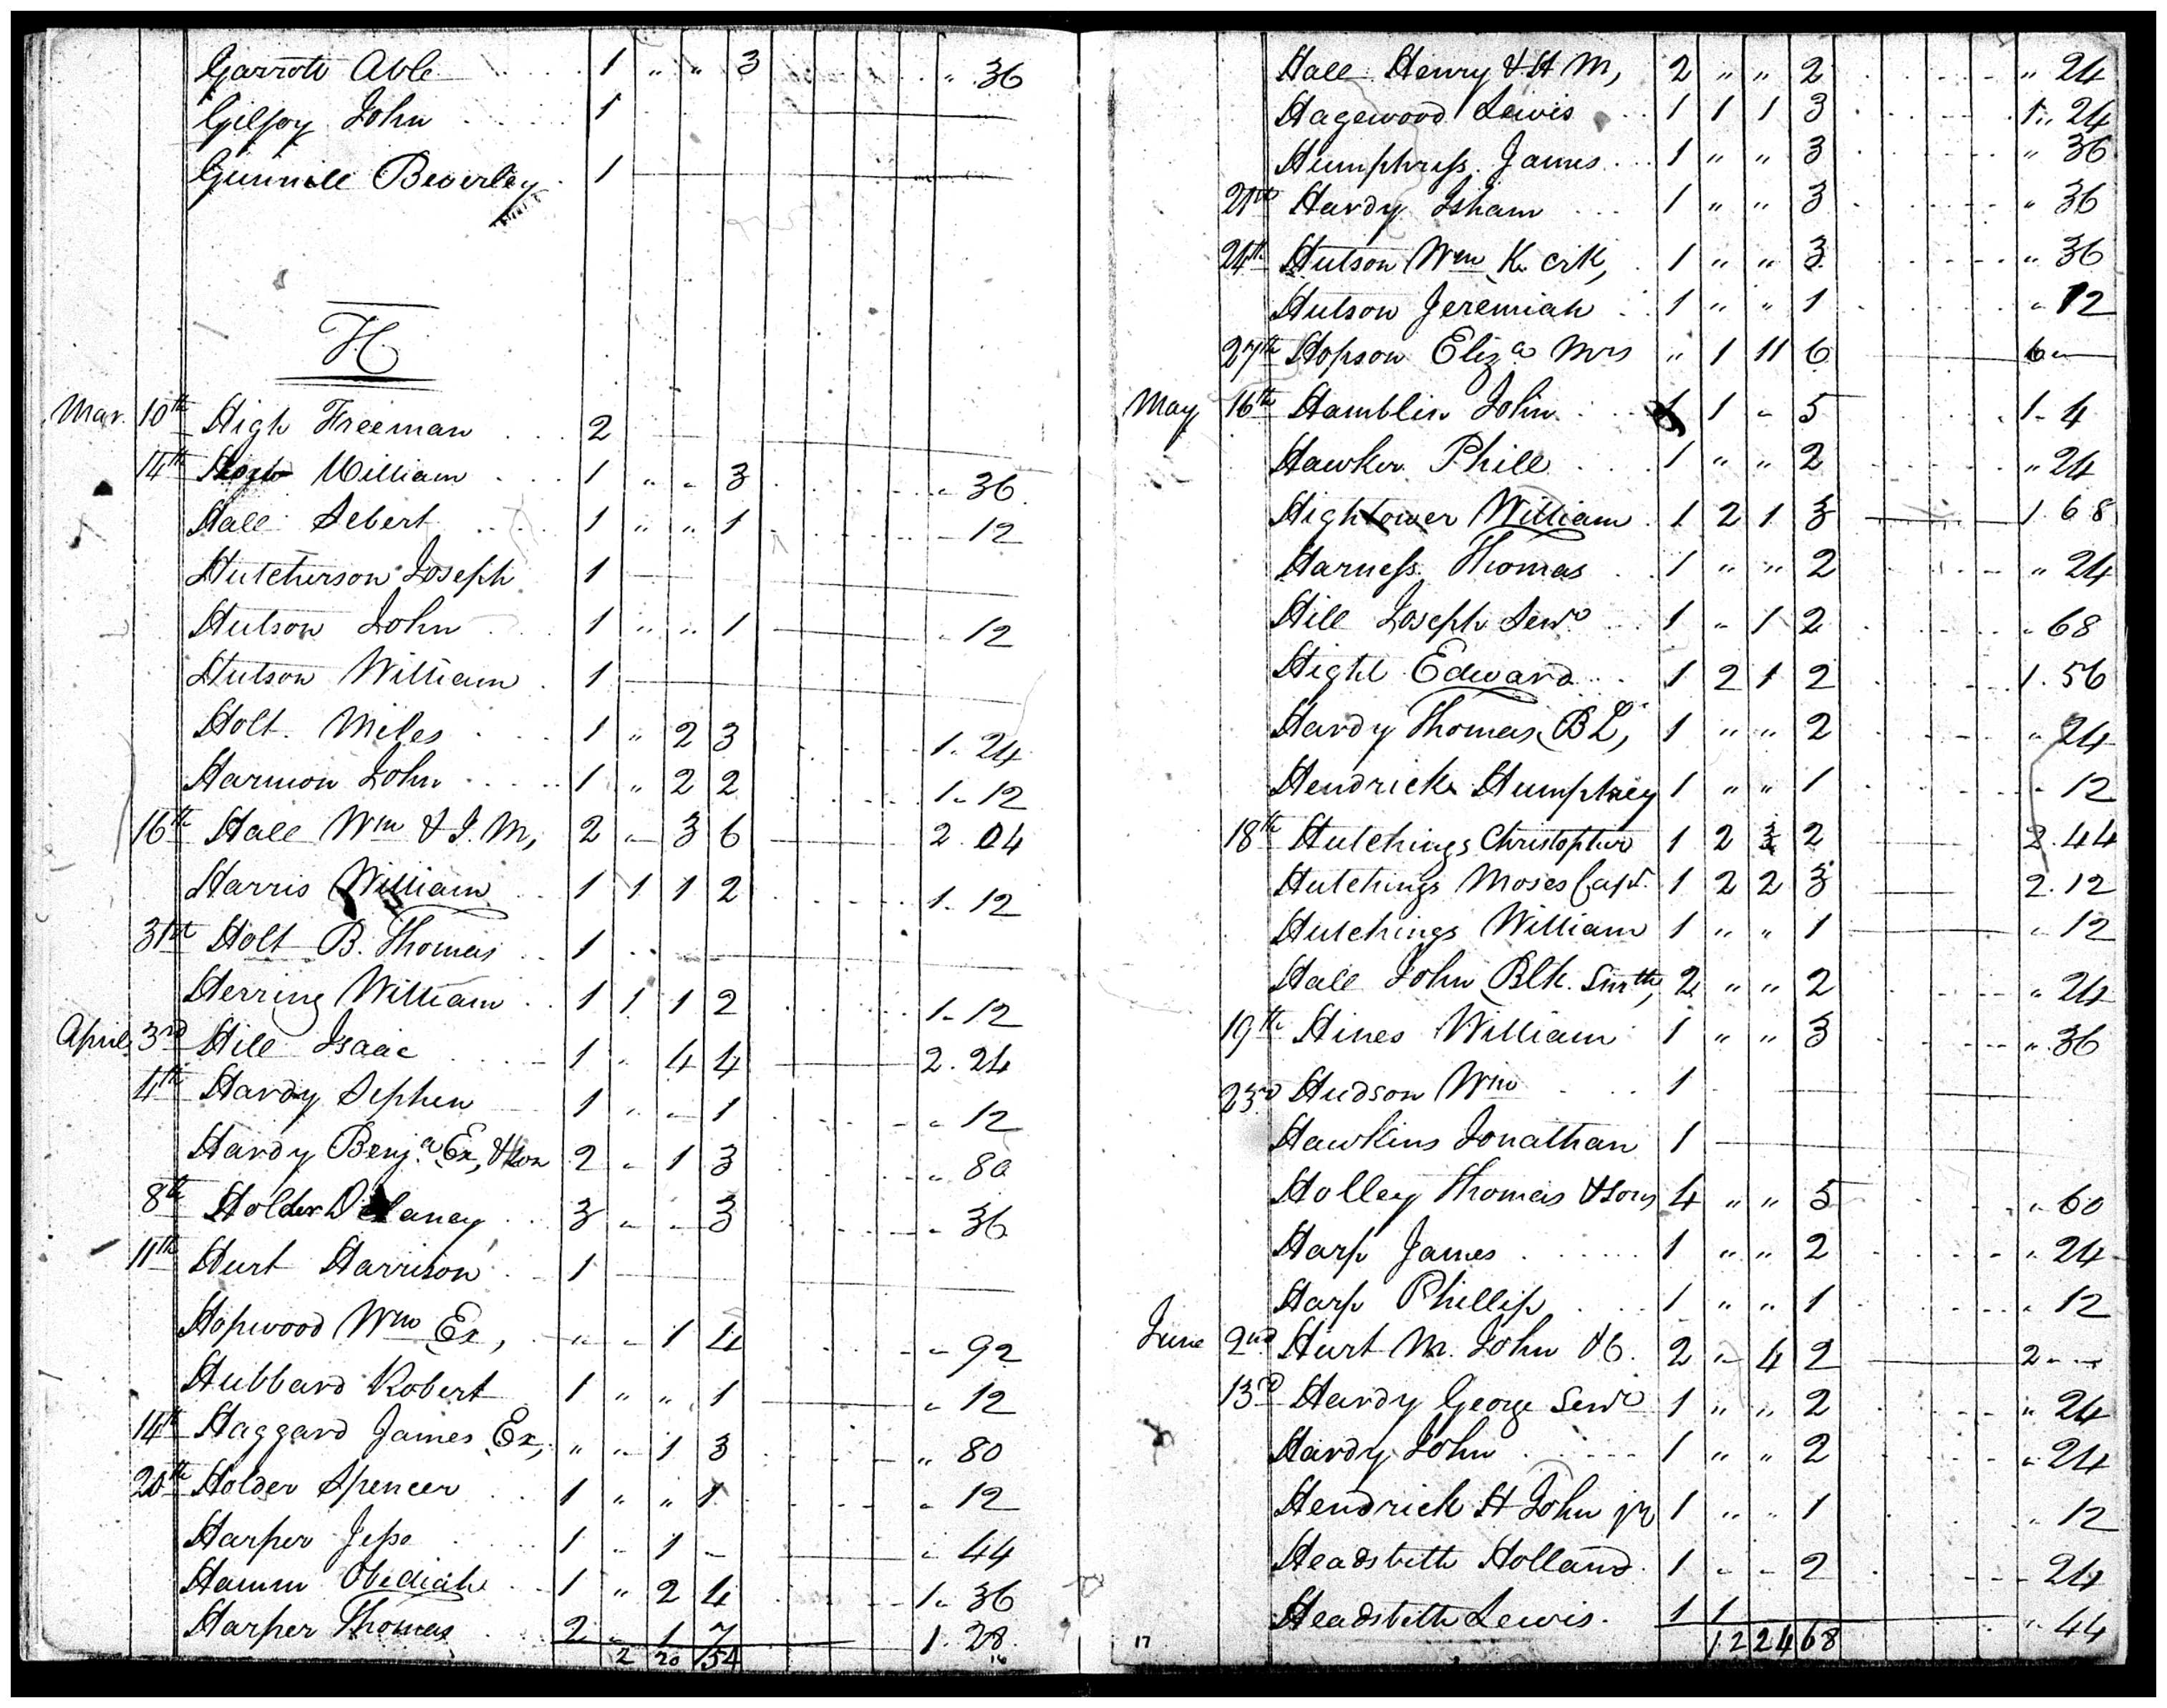 Garrott Able 1 " " 3 " 36
Gilfoy John 1
Gunnill Beverley 1
H.
Mar. 10th High Freeman 2
14th William 1 " " 3 " 36
Hall Sebert 1 " " 1 " 12
Hutcherson Joseph 1
Hutson John 1 " " 1 " 12
Hutson William 1
Holt Miles 1 " 2 3 1 " 24
Harmon John 1 " 2 2 1 " 12
16th Hall Wm & J. M, 2 " 3 6 2 . 04
Harris William 1 1 1 2 1 " 12
31st Holt B. Thomas 1
Herring William 1 1 1 2 1 " 12
April 3rd Hill Isaac 1 " 4 4 2 . 24
4th Hardy Sephen 1 " " 1 " 12
Hardy Benja Ex, & son 2 " 1 3 " 80
8th Holder Delaney 3 " " 3 " 36
11th Hurt Harrison 1
Hopwood Wm Ex, " " 1 4 " 92
Hubbard Robert 1 " " 1 " 12
14th Haggard James Ex, " " 1 3 " 80
20th Holder Spencer 1 " " 1 " 12
Harper Jesse 1 " 1 " " 44
Hamm Obediah 1 " 2 4 1 " 36
Harper Thomas 2 " 1 7 1 . 28
2 20 54 16
Hall Henry & H M, 2 " " 2 " 24
Hagewood Lewis 1 1 1 3 1 " 24
Humphress James 1 " " 3 " 36
Hardy Isham 1 " " 3 " 36
24th Hutson Wm K. crk, 1 " " 3 " 36
Hutson Jeremiah 1 " " 1 " 12
27th Hopson Eliza Mrs " 1 11 6 6 "
May 16th Hamblin John 1 1 " 5 1 " 4
Hawker Phill 1 " " 2 " 24
Hightower William 1 2 1 3 1 . 68
Harness Thomas 1 " " 2 " 24
Hill Joseph Senr 1 " 1 2 " 68
Hight Edward 1 2 1 2 1 . 56
Hardy Thomas B L, 1 " " 2 " 24
Hendricks Humphrey 1 " " 1 " 12
18th Hutchings Christopher 1 2 3 2 2 . 44
Hutchings Moses Capt. 1 2 2 3 2 . 12
Hutchings William 1 " " 1 " 12
Hall John Blk. Smith, 2 " " 2 " 24
19th Hines William 1 " " 3 " 36
23rd Hudson Wm 1
Hawkins Jonathan 1
Holley Thomas & sons 4 " " 5 " 60
Harp James 1 " " 2 " 24
Harp Phillip 1 " " 1 " 12
June 2nd Hurt M. John & C. 2 " 4 2 2 " "
13th Hardy George Senr 1 " " 2 " 24
Hardy John 1 " " 2 " 24
Hendrick H John jr 1 " " 1 " 12
Headsbeth Holland 1 " " 2 " 24
Headsbeth Lewis 1 1 " 44
17 12 24 68